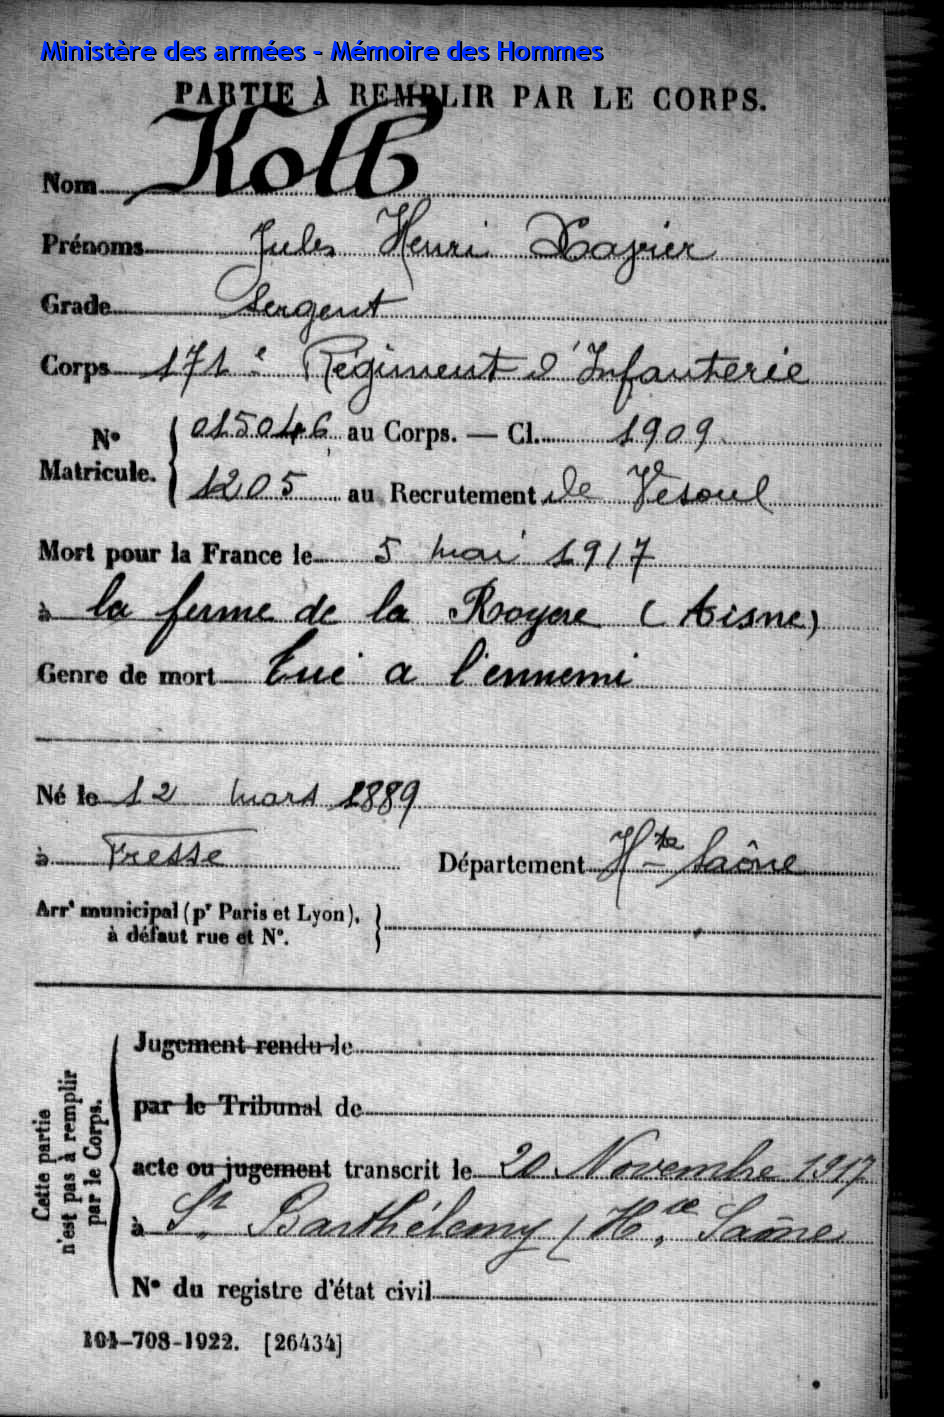 Ministère des armées - Mémoire des Hommes
PARTIE À REMPLIR PAR LE CORPS.
Nom Kolb
Prénoms Jules Henri Xavier
Grade Sergent
Corps 171e Régiment d'Infanterie
N° Matricule. { 015046 au Corps. — Cl. 1909
1205 au Recrutement de Vesoul
Mort pour la France le 5 mai 1917
à la ferme de la Royere (Aisne)
Genre de mort Tué a l'ennemi
Né le 12 mars 1889
à Fresse Département Hte Saône
Arrt municipal (pr Paris et Lyon), }
à défaut rue et N°.
Cette partie n'est pas à remplir par le Corps.
Jugement rendu le
par le Tribunal de
acte ou jugement transcrit le 20 Novembre 1917
à St. Barthélemy (Hte. Saône
N° du registre d'état civil
101-708-1922. [26434]